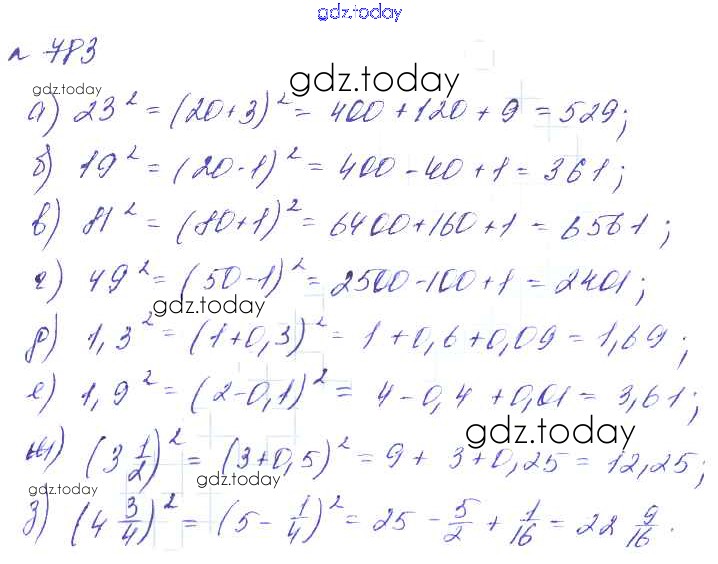 gdz.today
n 783
gdz.today
gdz.today
а) 23² = (20+3)² = 400 + 120 + 9 = 529;
б) 19² = (20-1)² = 400 - 40 + 1 = 361;
в) 81² = (80+1)² = 6400 + 160 + 1 = 6561;
г) 49² = (50-1)² = 2500 - 100 + 1 = 2401;
gdz.today
д) 1,3² = (1+0,3)² = 1 + 0,6 + 0,09 = 1,69;
е) 1,9² = (2-0,1)² = 4 - 0,4 + 0,01 = 3,61;
gdz.today
ж) (3 1/2)² = (3+0,5)² = 9 + 3 + 0,25 = 12,25;
gdz.today
gdz.today
з) (4 3/4)² = (5 - 1/4)² = 25 - 5/2 + 1/16 = 22 9/16.